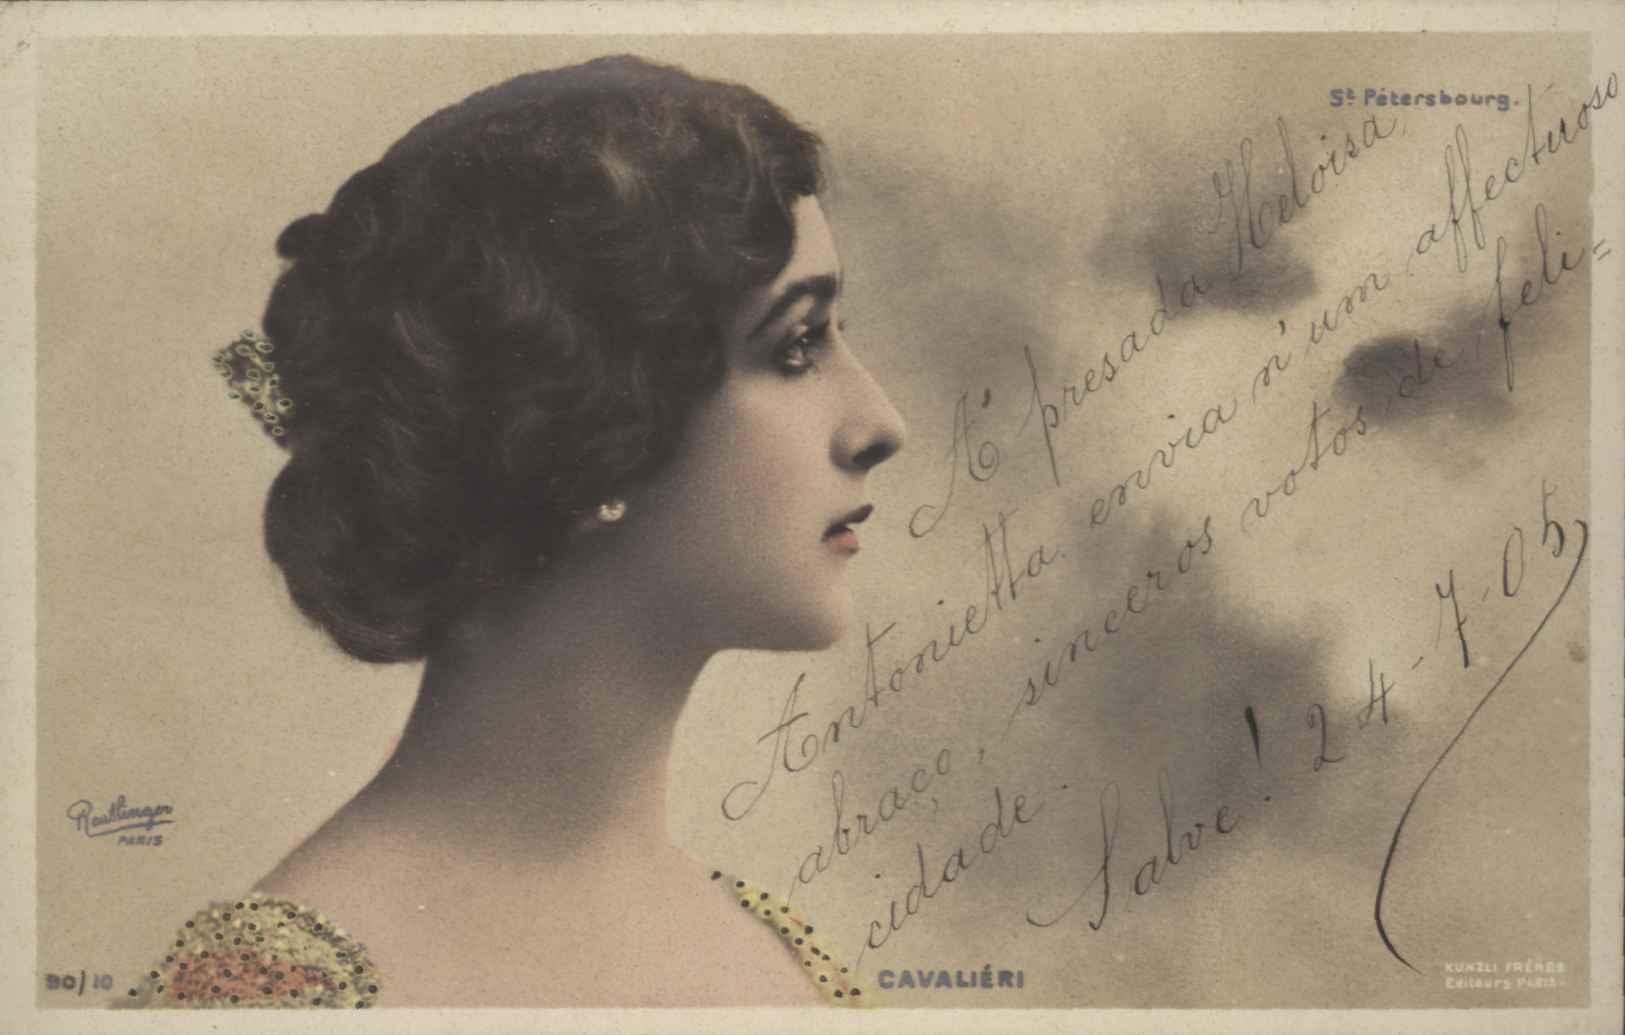 St. Pétersbourg.
A' presada Heloisa,
Antonietta envia n'um affectuoso
abraço, sinceros votos de feli=
cidade.
Salve! 24-7-05
Reutlinger
PARIS
90/10
CAVALIÉRI
KUNZLI FRÈRES
Editeurs PARIS-